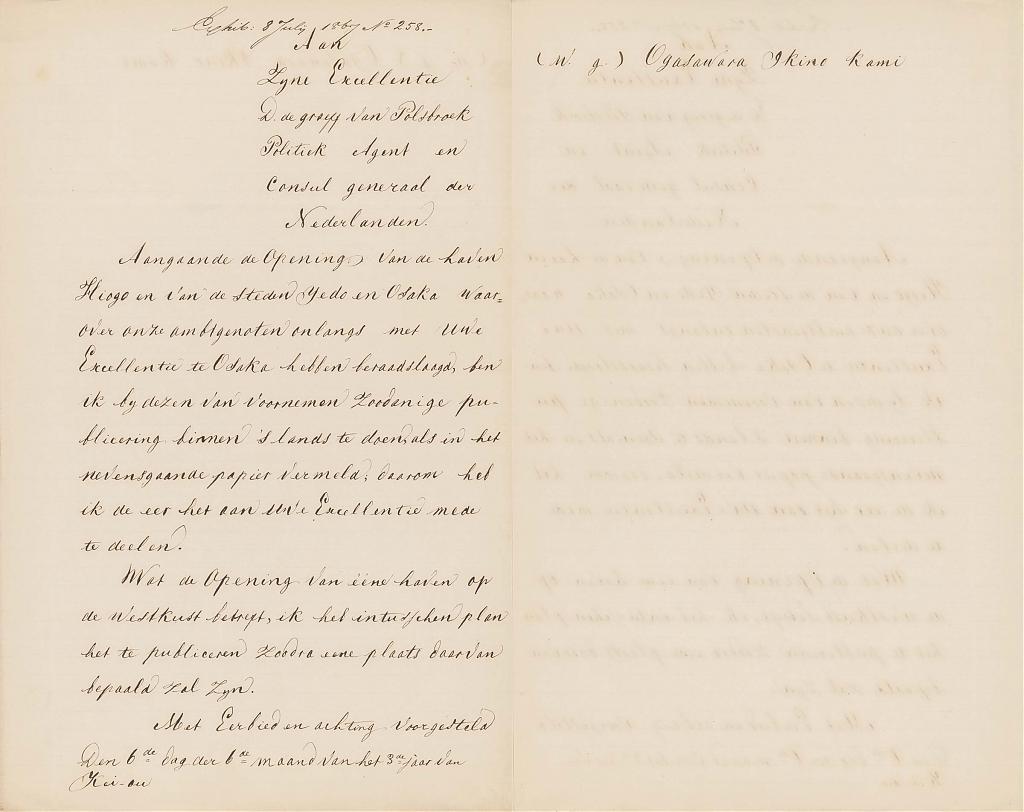 Exhib: 8 July 1867 No 258.-
Aan
Zyne Excellentie
D. de graeff van Polsbroek
Politiek Agent en
Consul generaal der
Nederlanden.
Aangaande de Opening van de haven
Hiogo en van de steden Yedo en Osaka waar-
over onze ambtgenoten onlangs met Uwe
Excellentie te Osaka hebben beraadslaagd, ben
ik by dezen van voornemen zoodanige pu-
blicering binnen 's lands te doen, als in het
nevensgaande papier vermeld; daarom heb
ik de eer het aan Uwe Excellentie mede
te deelen.
Wat de Opening van ééne haven op
de Westkust betreft, ik heb intusschen plan
het te publiceren zoodra eene plaats daarvan
bepaald zal zyn.
Met Eerbied en achting voorgesteld
Den 6de dag der 6de maand van het 3de jaar van
Kei-ou
(w. g.) Ogasawara Ikino kami